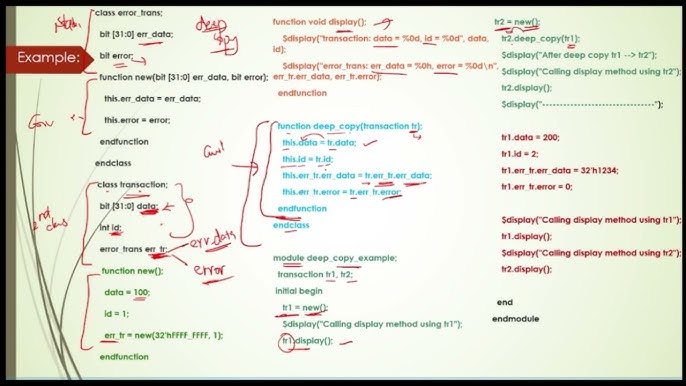 Example:
class error_trans;
bit [31:0] err_data;
bit error;
function new(bit [31:0] err_data, bit error);
this.err_data = err_data;
this.error = error;
endfunction
endclass
class transaction;
bit [31:0] data;
int id;
error_trans err_tr;
function new();
data = 100;
id = 1;
err_tr = new(32'hFFFF_FFFF, 1);
endfunction
deep
copy
2nd
class
err.data
error
function void display();
$display("transaction: data = %0d, id = %0d", data,
id);
$display("error_trans: err_data = %0h, error = %0d\n",
err_tr.err_data, err_tr.error);
endfunction
function deep_copy(transaction tr);
this.data = tr.data;
this.id = tr.id;
this.err_tr.err_data = tr.err_tr.err_data;
this.err_tr.error = tr.err_tr.error;
endfunction
endclass
module deep_copy_example;
transaction tr1, tr2;
initial begin
tr1 = new();
$display("Calling display method using tr1");
tr1.display();
tr2 = new();
tr2.deep_copy(tr1);
$display("After deep copy tr1 --> tr2");
$display("Calling display method using tr2");
tr2.display();
$display("--------------------------------");
tr1.data = 200;
tr1.id = 2;
tr1.err_tr.err_data = 32'h1234;
tr1.err_tr.error = 0;
$display("Calling display method using tr1");
tr1.display();
$display("Calling display method using tr2");
tr2.display();
end
endmodule